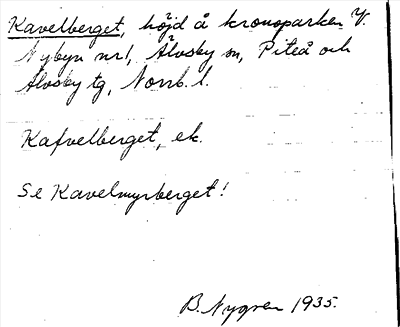 Kavelberget, höjd å kronoparken V.
Nybyn nr 1, Älvsby sn, Piteå och
Älvsby tg, Norrb. l.
Kafvelberget, ek.
Se Kavelmyrberget!
B. Nygren 1935.